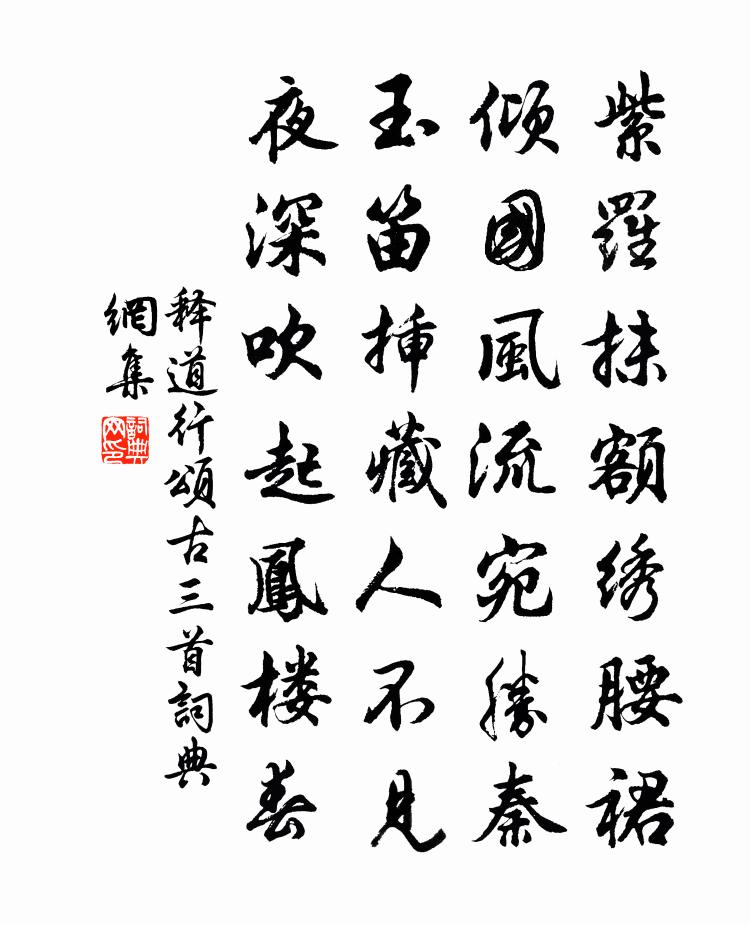 紫羅抹額綉腰裙
傾國風流宛勝秦
玉笛揷藏人不見
夜深吹起鳳楼春
释道行頌古三首詞典
網集
詞典
网印